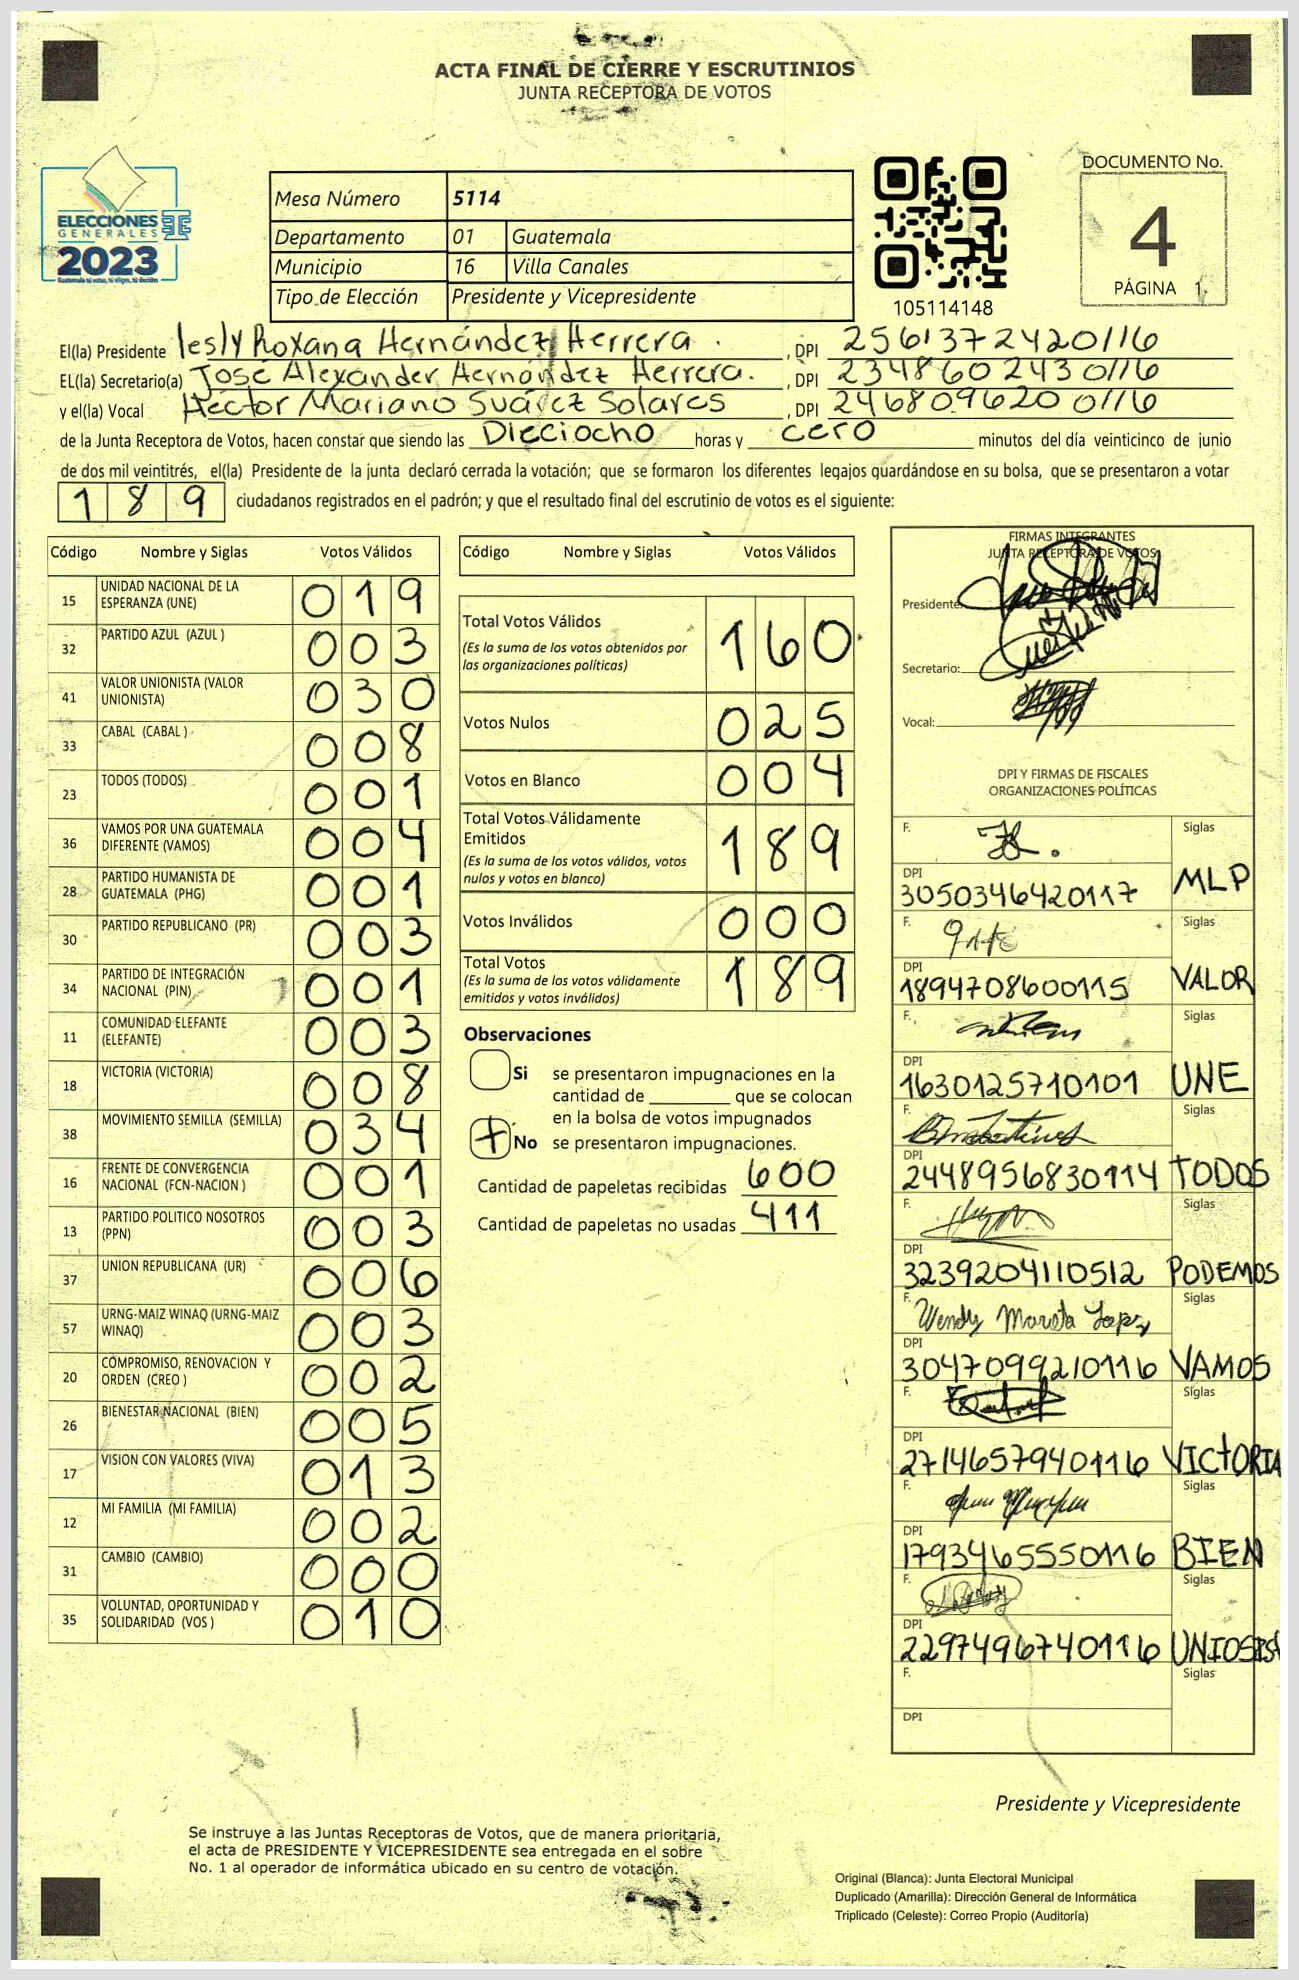 ACTA FINAL DE CIERRE Y ESCRUTINIOS
JUNTA RECEPTORA DE VOTOS
ELECCIONES
GENERALES
2023
Mesa Número 5114
Departamento 01 Guatemala
Municipio 16 Villa Canales
Tipo de Elección Presidente y Vicepresidente
105114148
DOCUMENTO No.
4
PÁGINA 1
El(la) Presidente lesly Roxana Hernández Herrera . , DPI 2561372420116
EL(la) Secretario(a) José Alexander Hernández Herrera. , DPI 2348602430116
y el(la) Vocal Héctor Mariano Suárez Solares , DPI 2468096200116
de la Junta Receptora de Votos, hacen constar que siendo las Dieciocho horas y cero minutos del día veinticinco de junio
de dos mil veintitrés, el(la) Presidente de la junta declaró cerrada la votación; que se formaron los diferentes legajos guardándose en su bolsa, que se presentaron a votar
189 ciudadanos registrados en el padrón; y que el resultado final del escrutinio de votos es el siguiente:
Código Nombre y Siglas Votos Válidos
15 UNIDAD NACIONAL DE LA ESPERANZA (UNE) 019
32 PARTIDO AZUL (AZUL ) 003
41 VALOR UNIONISTA (VALOR UNIONISTA) 030
33 CABAL (CABAL ) 008
23 TODOS (TODOS) 001
36 VAMOS POR UNA GUATEMALA DIFERENTE (VAMOS) 004
28 PARTIDO HUMANISTA DE GUATEMALA (PHG) 001
30 PARTIDO REPUBLICANO (PR) 003
34 PARTIDO DE INTEGRACIÓN NACIONAL (PIN) 001
11 COMUNIDAD ELEFANTE (ELEFANTE) 003
18 VICTORIA (VICTORIA) 008
38 MOVIMIENTO SEMILLA (SEMILLA) 034
16 FRENTE DE CONVERGENCIA NACIONAL (FCN-NACION ) 001
13 PARTIDO POLITICO NOSOTROS (PPN) 003
37 UNION REPUBLICANA (UR) 006
57 URNG-MAIZ WINAQ (URNG-MAIZ WINAQ) 003
20 COMPROMISO, RENOVACION Y ORDEN (CREO ) 002
26 BIENESTAR NACIONAL (BIEN) 005
17 VISION CON VALORES (VIVA) 013
12 MI FAMILIA (MI FAMILIA) 002
31 CAMBIO (CAMBIO) 000
35 VOLUNTAD, OPORTUNIDAD Y SOLIDARIDAD (VOS ) 010
Código Nombre y Siglas Votos Válidos
Total Votos Válidos 160
(Es la suma de los votos obtenidos por
las organizaciones políticas)
Votos Nulos 025
Votos en Blanco 004
Total Votos Válidamente
Emitidos 189
(Es la suma de los votos válidos, votos
nulos y votos en blanco)
Votos Inválidos 000
Total Votos 189
(Es la suma de los votos válidamente
emitidos y votos inválidos)
Observaciones
Si se presentaron impugnaciones en la
cantidad de ________ que se colocan
en la bolsa de votos impugnados
No se presentaron impugnaciones.
Cantidad de papeletas recibidas 600
Cantidad de papeletas no usadas 411
FIRMAS INTEGRANTES
JUNTA RECEPTORA DE VOTOS
Presidente:
Secretario:
Vocal:
DPI Y FIRMAS DE FISCALES
ORGANIZACIONES POLÍTICAS
F. Siglas
DPI
3050346420117 MLP
F. Siglas
DPI
1894708600115 VALOR
F. Siglas
DPI
1630125710101 UNE
F. Siglas
DPI
2448956830114 TODOS
F. Siglas
DPI
3239204110512 PODEMOS
F. Wendy Siglas
DPI
3047099210116 VAMOS
F. Siglas
DPI
2714657940116 VICTORIA
F. Siglas
DPI
1793465550116 BIEN
F. Siglas
DPI
2297496740116
F. Siglas
DPI
Presidente y Vicepresidente
Se instruye a las Juntas Receptoras de Votos, que de manera prioritaria,
el acta de PRESIDENTE Y VICEPRESIDENTE sea entregada en el sobre
No. 1 al operador de informática ubicado en su centro de votación.
Original (Blanca): Junta Electoral Municipal
Duplicado (Amarilla): Dirección General de Informática
Triplicado (Celeste): Correo Propio (Auditoría)